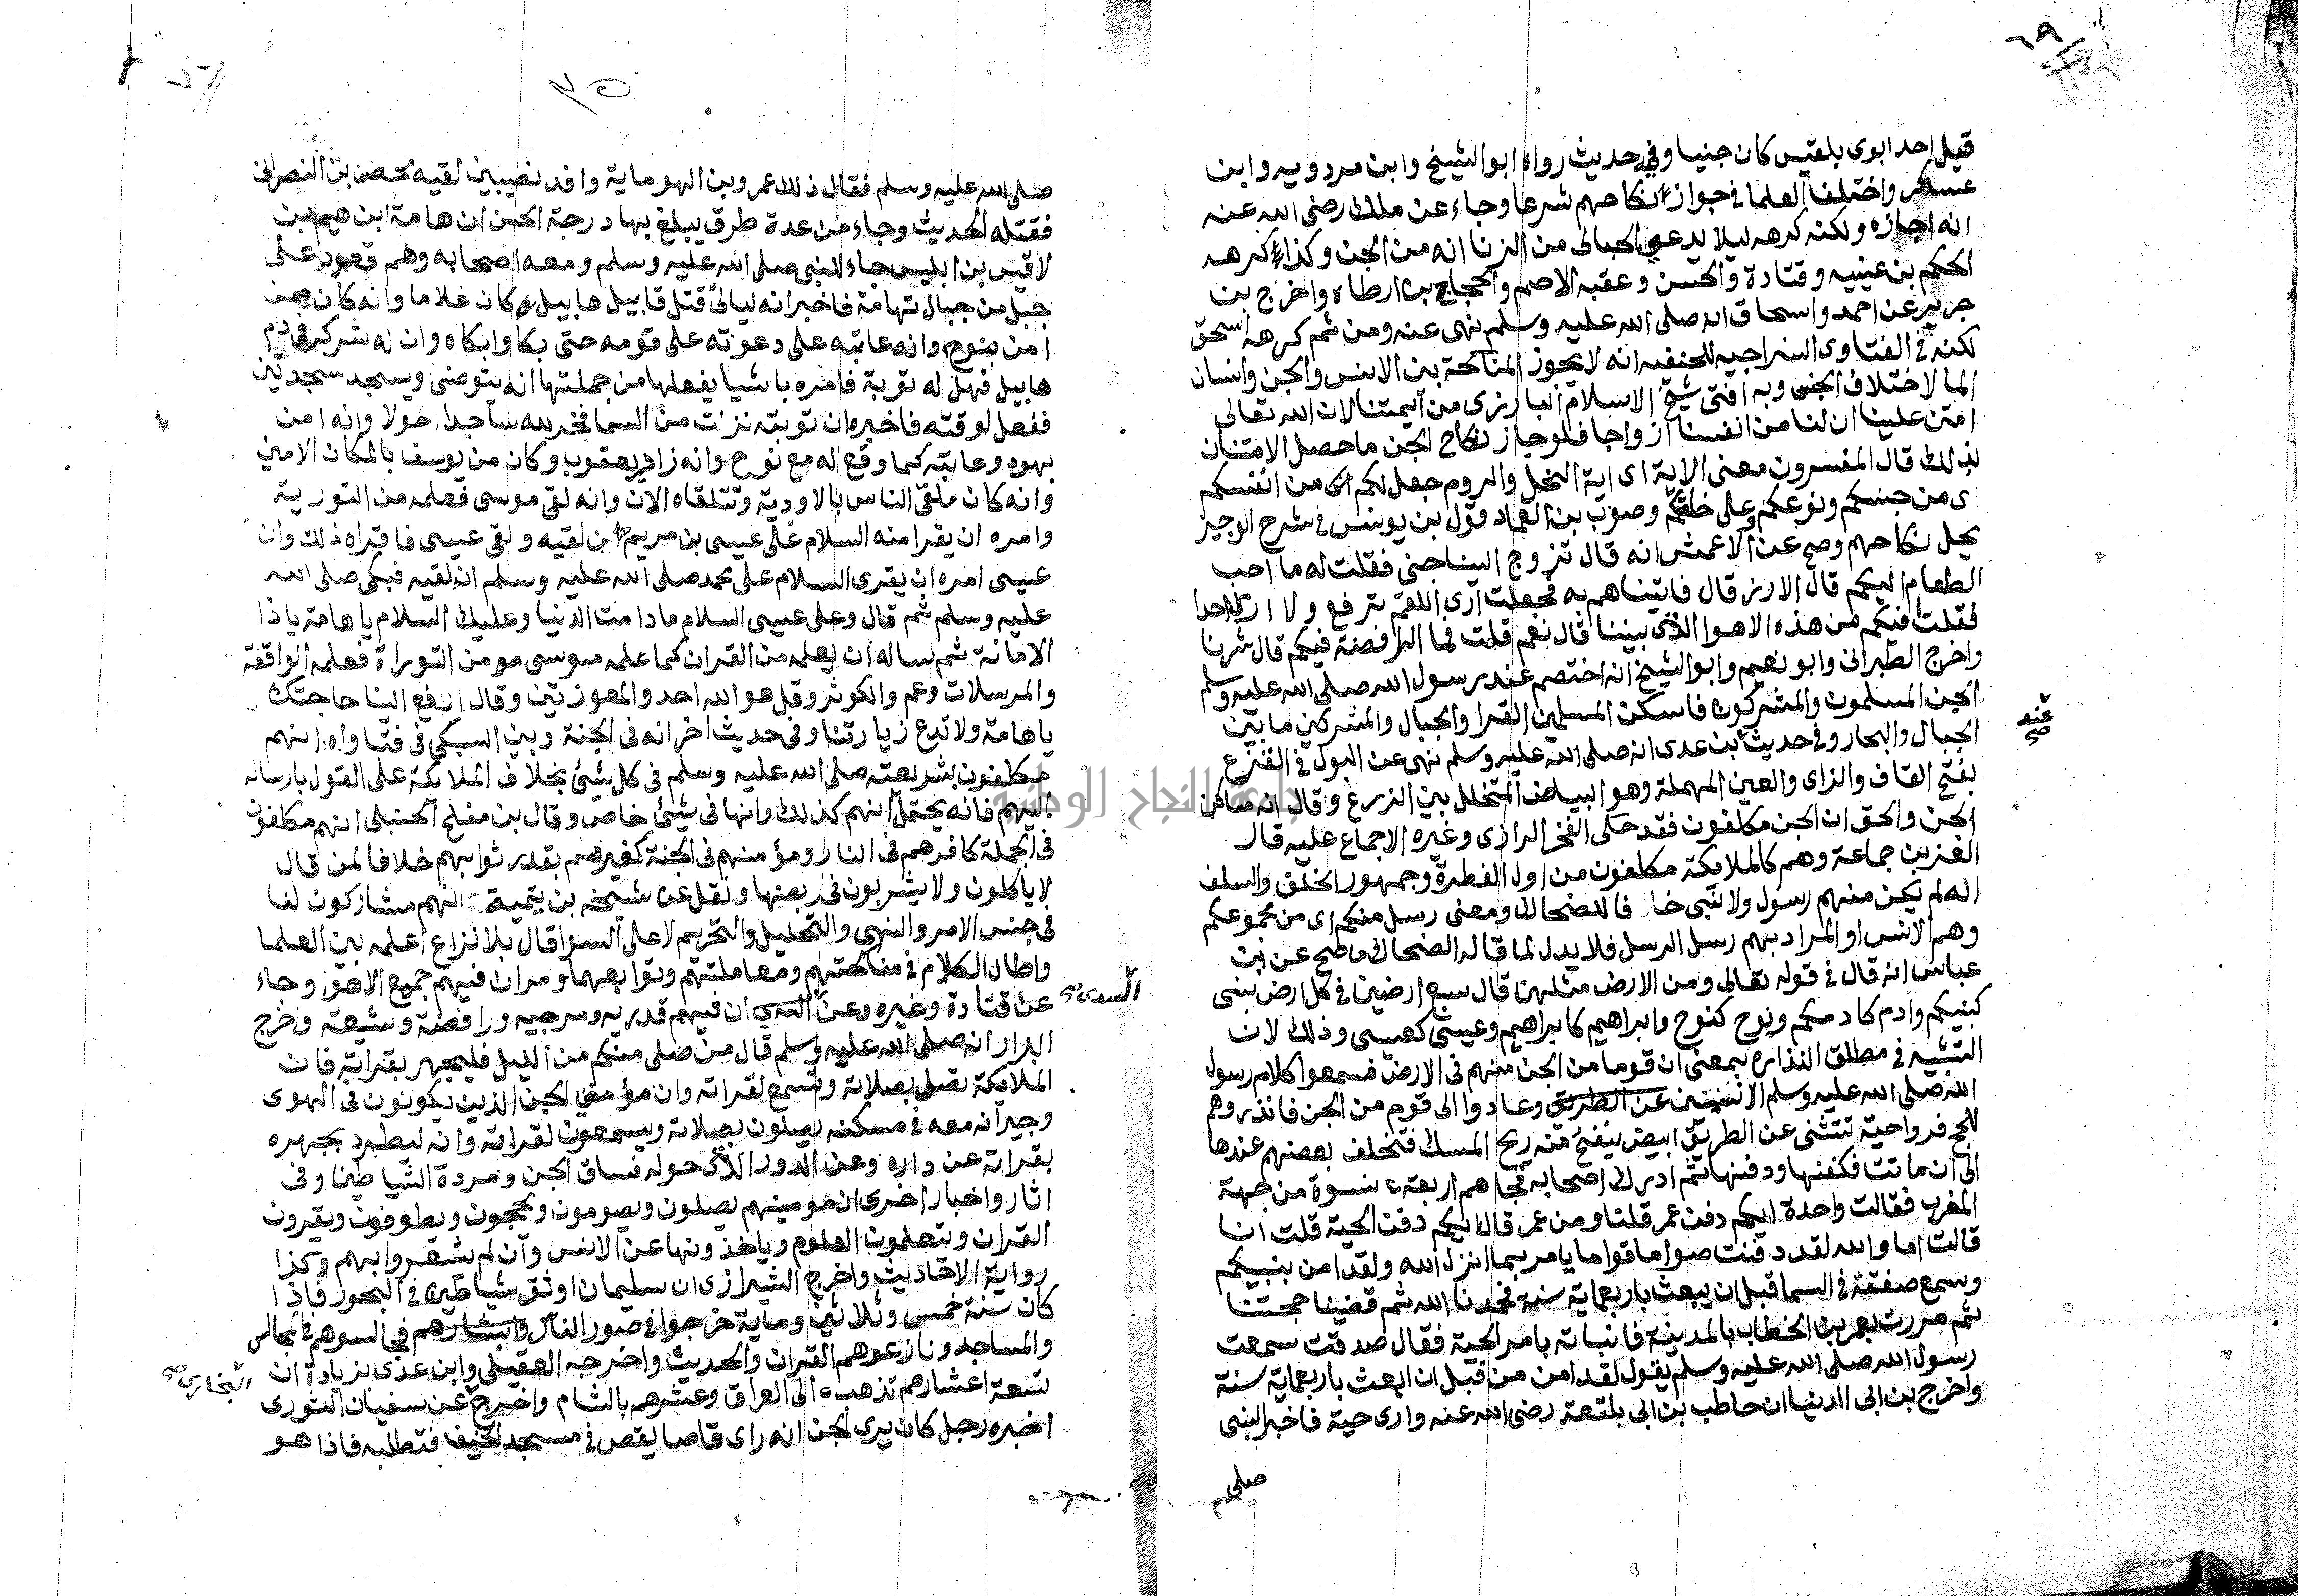 ٦٩
قيل احد ابوى بلقيس كان جنيا وفى حديث رواه ابو الشيخ وابن مردويه وابن
عساكر واختلف العلما فى جواز نكاحهم شرعا وجاء عن ملك رضى الله عنه
انه اجازه ولكنه كرهه ليلا يدعى الحبالى من الزنا انه من الجن وكذا كرهه
الحكم بن عيينه وقتادة والحسن وعقبه الاصم والحجاج بن ارطاه واخرج بن
جرير عن احمد واسحاق انه صلى الله عليه وسلم نهى عنه ومن ثم كرهه اسحق
لكنه فى الفتاوى السراجيه للحنفيه انه لا يجوز المناكحة بين الانس والجن وانسان
الما لاختلاف الجنس وبه افتى شيخ الاسلام البارزى من آيمتنا لان الله تعالى
امتن علينا ان لنا من انفسنا ازواجا فلو جاز نكاح الجن ما حصل الامتنان
بذالك قال المفسرون معنى الاية اى اية النحل والروم جعل لكم اى من انفسكم
اى من جنسكم ونوعكم وعلى خلقكم وصوب بن العماد قول بن يونس فى شرح الوجيز
يحل نكاحهم وصح عن الاعمش انه قال تزوج الينا جنى فقلت له ما احب
الطعام اليكم قال الارز قال فاتيناهم به فجعلت ارى اللقم ترفع ولا ارى احدا
فقلت فيكم من هذه الاهوا الذى بيننا قال نعم قلت فما الرافضة فيكم قال شرنا
واخرج الطبرانى وابو نعيم وابو الشيخ انه اختصم عند رسول الله صلى الله عليه وسلم
الجن المسلمون والمشركون فاسكن المسلمين القرا والجبال والمشركين ما بين
عند صح
الجبال والبحار وفى حديث ابن عدى انه صلى الله عليه وسلم نهى عن البول فى القزع
بفتح القاف والزاى والعين المهملة وهو البياض المتخلل بين الزرع وقال انه مساكن
الجن والحق ان الجن مكلفون فقد حكى الفخر الرازى وغيره الاجماع عليه قال
العز بن جماعة وهم كالملايكة مكلفون من اول الفطرة وجمهور الخلق والسلف
انه لم يكن منهم رسول ولا نبى خلافا للضحاك ومعنى رسل منكم اى من مجموعكم
وهم الانس او المراد بهم رسل الرسل فلا يدل لما قاله الضحاك وصح عن ابن
عباس انه قال فى قوله تعالى ومن الارض مثلهن قال سبع ارضين فى كل ارض بنبى
كنبيكم وادم كادمكم ونوح كنوح وابراهيم كابراهيم وعيسى كعيسى وذلك لان
التشبيه فى مطلق النذاره بمعنى ان قوما من الجن منهم فى الارض فسمعوا كلام رسول
الله صلى الله عليه وسلم الانسيين عن الطريق وعادوا الى قوم من الجن فانذروهم
للحج فروا حية تتثنى عن الطريق ابيض ينفح منه ريح المسك فتخلف بعضهم عندها
الى ان ماتت فكفنها ودفنها ثم ادرك اصحابه فجاهم اربعة نسوة من جهة
المغرب فقالت واحدة ايكم دفن عمر قلنا ومن عمر قال ايكم دفن الحية قلت انا
قالت اما والله لقد دفنت صواما قواما يامر بما انزل الله ولقد امن بنبيكم
وسمع صفته فى السما قبل ان يبعث باربعماية سنة فحمدنا الله ثم قضينا حجتنا
ثم مررت بعمر بن الخطاب بالمدينة فانباته بامر الحية فقال صدقت سمعت
رسول الله صلى الله عليه وسلم يقول لقد امن من قبل ان ابعث باربعماية سنة
واخرج بن ابى الدنيا ان حاطب بن ابى بلتعة رضى الله عنه وارى حية فاخبر النبى
صلى
٣٥
صلى الله عليه وسلم فقال ذلك عمرو بن الهوماية وافد نصيبين لقيه محصن بن النصرانى
فقتله الحديث وجاء من عدة طرق يبلغ بها درجة الحسن ان هامة ابن هيم بن
لاقيس بن ابليس جاء للنبى صلى الله عليه وسلم ومعه اصحابه وهم قعود على
جبل من جبال تهامة فاخبر انه ليالى قتل قابيل هابيل كان غلاما وانه كان ممن
امن بنوح وانه عاتبه على دعوته على قومه حتى بكا وابكاه وان له شركه فى دم
هابيل فهل له توبة فامره باشيا يفعلها من جملتها انه يتوضى ويسجد سجدتين
ففعل لوقته فاخبره ان توبته نزلت من السما فخر لله ساجدا حولا وانه امن
بهود وعاتبه كما وقع له مع نوح وانه زار يعقوب وكان من يوسف بالمكان الامين
وانه كان ملقى الناس بالاودية وتتلقاه الان وانه لقى موسى فعلمه من التورية
وامره ان يقرا منه السلام على عيسى بن مريم ان لقيه ولقى عيسى فاقراه ذلك وان
عيسى امره ان يقرى السلام على محمد صلى الله عليه وسلم ان لقيه فبكى صلى الله
عليه وسلم ثم قال وعلى عيسى السلام ما دامت الدنيا وعليك السلام يا هامة يا ذا
الامانة ثم ساله ان يعلمه من القران كما علمه موسى من التوراة فعلمه الواقعة
والمرسلات وعم والكوثر وقل هو الله احد والمعوذتين وقال ارفع الينا حاجتك
يا هامة ولا تدع زيارتنا وفى حديث اخر انه فى الجنة وبين السبكى فى فتاواه انهم
مكلفون بشريعته صلى الله عليه وسلم فى كل شيئ بخلاف الملايكة على القول بارساله
اليهم فانه يحتمل انهم كذلك وانها فى شيئ خاص وقال بن مفلح الحنبلى انهم مكلفون
فى الجملة كافرهم فى النار ومؤمنهم فى الجنة كغيرهم بقدر ثوابهم خلافا لمن قال
لا ياكلون ولا يشربون فى ربضها ونقل عن شيخه بن تيمية انهم مشاركون لنا
فى جنس الامر والنهى والتحليل والتحريم لا على السوا قال بلا نزاع اعلمه بين العلما
واطال الكلام فى مناكحتهم ومعاملتهم وتوابعهما ومر ان فيهم جميع الاهوا وجاء
عن قتادة وغيره وعن السدى ان فيهم قدريه ومرجيه ورافضة وشيعة واخرج
السدى صح
البزار انه صلى الله عليه وسلم قال من صلى منكم من الليل فليجهر بقراته فان
الملايكة تصلى بصلاته وتسمع لقراته وان مؤمنى الجن الذين يكونون فى الهوى
وجيرانه معه فى مسكنه يصلون بصلاته ويسمعون لقراته وانه ليطرد بجهره
بقراته عن داره وعن الدور التى حوله فساق الجن ومردة الشياطين وفى
اثار واخبار اخرى ان مومنيهم يصلون ويصومون ويحجون ويطوفون ويقرون
القران ويتعلمون العلوم وياخذونها عن الانس وان لم يشعروا بهم وكذا
رواية الاحاديث واخرج الشيرازى ان سليمان اوثق شياطين فى البحور فاذا
كان سنة خمس وثلاثين وماية خرجوا فى صور الناس وابشارهم فجالسوهم فى المجالس
والمساجد ونازعوهم القران والحديث واخرجه العقيلى وابن عدى بزيادة ان
تسعة اعشارهم تذهب الى العراق وعشرهم بالشام واخرج عن سفيان الثورى
البخارى صح
اخبره رجل كان يرى الجن انه راى قاصا يقص فى مسجد الخيف فتطلبه فاذا هو
جامعة النجاح الوطنية